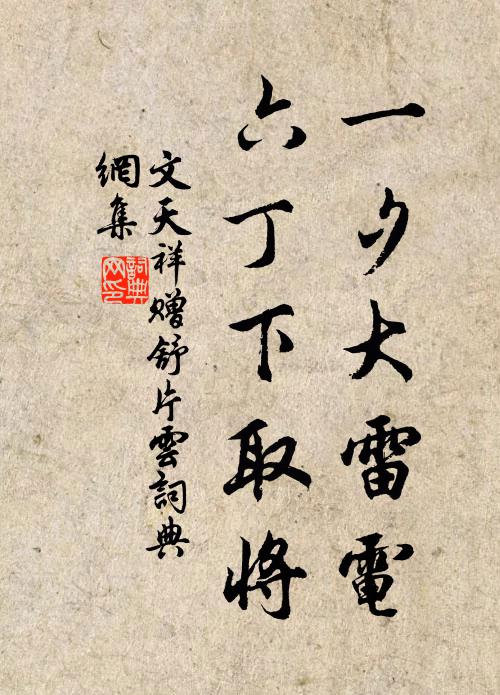 一夕大雷電
六丁下取將
文天祥贈舒片雲詞典
網集
詞典
网印